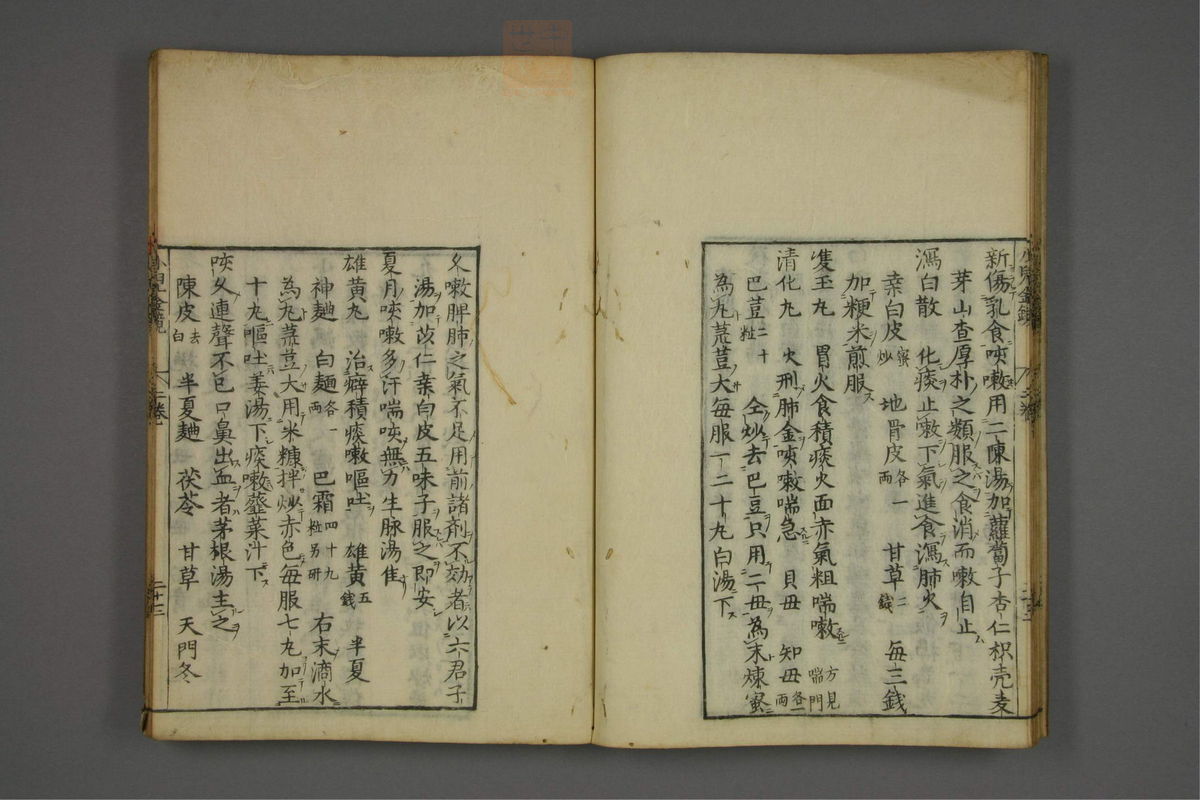 新傷乳食咳嗽用二陳湯加蘿蔔子杏仁枳壳麦
芽山查厚朴之類服之食消而嗽自止
瀉白散 化痰止嗽下氣進食瀉肺火
桒白皮蜜炒 地骨皮各一両 甘草二錢 每三錢
加粳米煎服
隻玉丸 胃火食積痰火面赤氣粗喘嗽 方見喘門
清化丸 火刑肺金咳嗽喘急 貝母 知母各一両
巴荳二十粒 仝炒去巴豆只用二母為末煉蜜
為丸菉荳大每服一二十丸白湯下
久嗽脾肺之氣不足用前諸剤不効者以六君子
湯加苡仁桒白皮五味子服之即安
夏月咳嗽多汗喘咳無力生脉湯隹
雄黄丸 治癖積痰嗽嘔吐 雄黄五錢 半夏
神麯 白麺各一両 巴霜四十九粒另研 右末滴水
為丸菉荳大用米糠拌炒赤色每服七丸加至
十丸嘔吐姜湯下痰嗽虀菜汁下
咳久連聲不已口鼻出血者茅根湯主之
陳皮去白 半夏麯 茯苓 甘草 天門冬
小兒金鏡 二卷 二十三